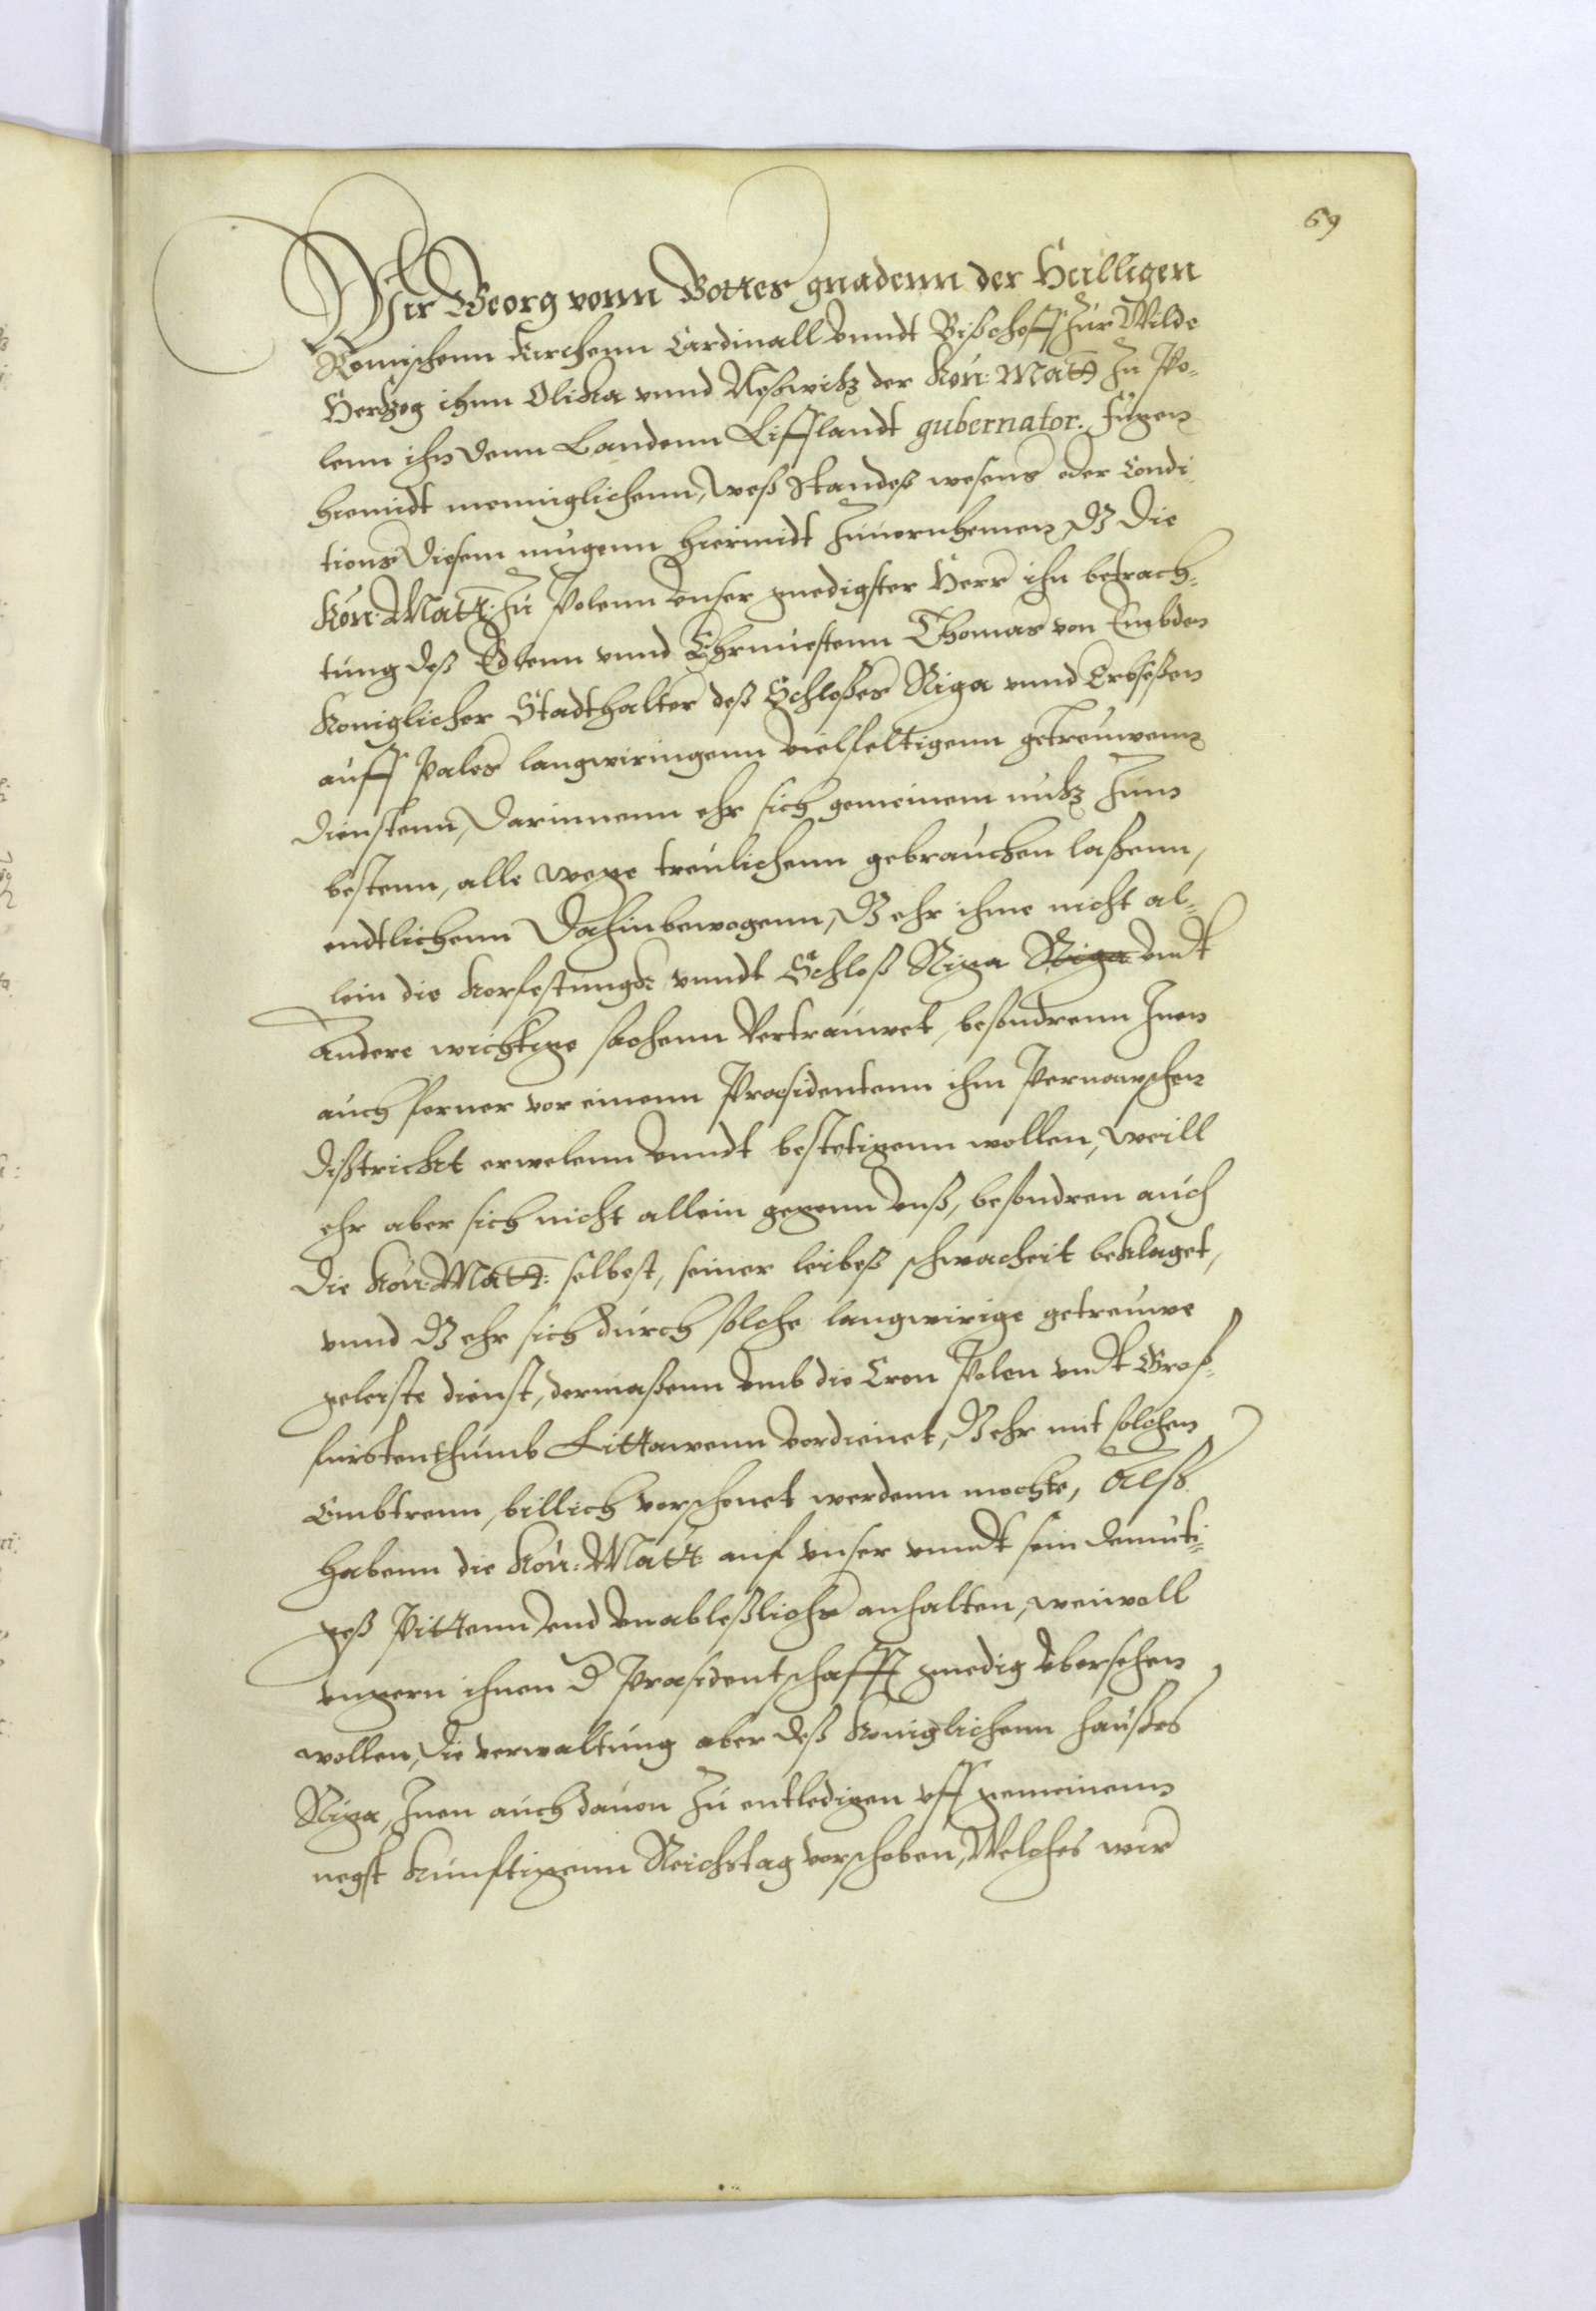 69
Wir Georg vonn Gottes gnadenn der Heilligen
Romischenn Kirchenn Cardinall vnndt Bischoff zur Wilde
Hertzog ihnn Olika vnnd Neßwitz der Kön: Matt zu Po¬
lenn ihn denn Landenn Lifflandt gubernator. fugen
hiemidt menniglichenn, weß Standeß wesens oder Condi
tions diesem mugenn hiermidt zuuornhemen, Dz die
Kön: Matt: zu Polenn vnser gnedigster Herr ihn betrach¬
tung deß Edlenn vnnd Ehrnuestenn Thomas von Embden
Koniglicher Stadthalter deß Schloßes Riga vnnd Erbseßen
auff Pales langwiringenn vielfeltigenn getreuwenn
dienstenn, darinnenn ehr sich gemeinem nutz zum
bestenn, alle wege treulichenn gebrauchen laßenn,
endtlichenn dahin bewogenn, Dz ehr ihme nicht al¬
lein die Korfestungk vnndt Schloß Riga Riga vndt
andere wichtige sachenn Vertrauwet, besondrenn Inen
auch ferner vor einenn Præsidentenn ihm Pernowschen
districkt erwelenn vnndt bestetigenn wollen, weill
ehr aber sich nicht allein gegenn vnß, besondren auch
die Kön: Matt: selbest, seiner leibeß schwacheit beklaget,
vnnd Dz ehr sich durch solche langwirige getreuwe
geleiste dienst, dermaßenn vmb die Cron Polen vndt Groß¬
furstenthumb Littawenn vordienet, Dz ehr mit solchen
Embtrenn, billich vorschonet werdenn mochte, Alß
habenn die Kön: Matt: auf vnser vnndt sein demuti¬
geß Pittenn vnd vnableßlichs anhalten, weiwoll
vngern ihnen D Præsidentschafft gnedig vbersehen
wollen, die verwaltung aber deß Koniglichenn haußes
Riga, Inen auch dauon zu entledigen vff gemeinenn
negst kunftigenn Reichstag vorschoben, Welches wir